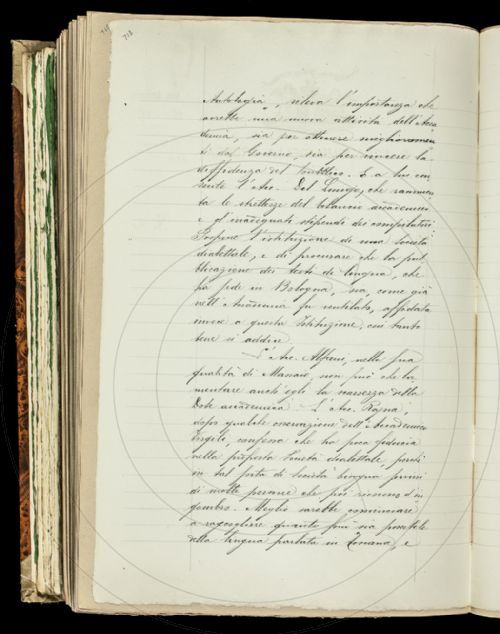 718
Antologia", rileva l'importanza che
avrebbe una nuova attività dell'Acca
demia, sia per ottenere miglioramen
ti dal Governo, sia per vincere la
diffidenza del Pubblico. E a lui con
sente l'Acc. Del Lungo, che rammen
ta le strettezze del bilancio accademico
e gl'inadeguati stipendi dei compilatori.
Propone l'istituzione di una Società
dialettale, e di procurare che la pub
blicazione dei testi di lingua, che
ha sede in Bologna, sia, come già
nell'Accademia fu ventilato, affidata
invece a questa Istituzione, cui tanto
bene si addice.
L'Acc. Alfani, nella sua
qualità di Massaio, non può che la
mentare anch'egli la scarsezza della
Dote accademica. L'Acc. Rajna,
dopo qualche osservazione dell'Accademico
confessa che ha poca fiducia
nella proposta Società dialettale, perchè
in tal sorta di Società bisogna servirsi
di molte persone che poi riescono d'in
gombro. Meglio sarebbe cominciare
a raccogliere quante più sia possibile
della lingua parlata in Toscana, e